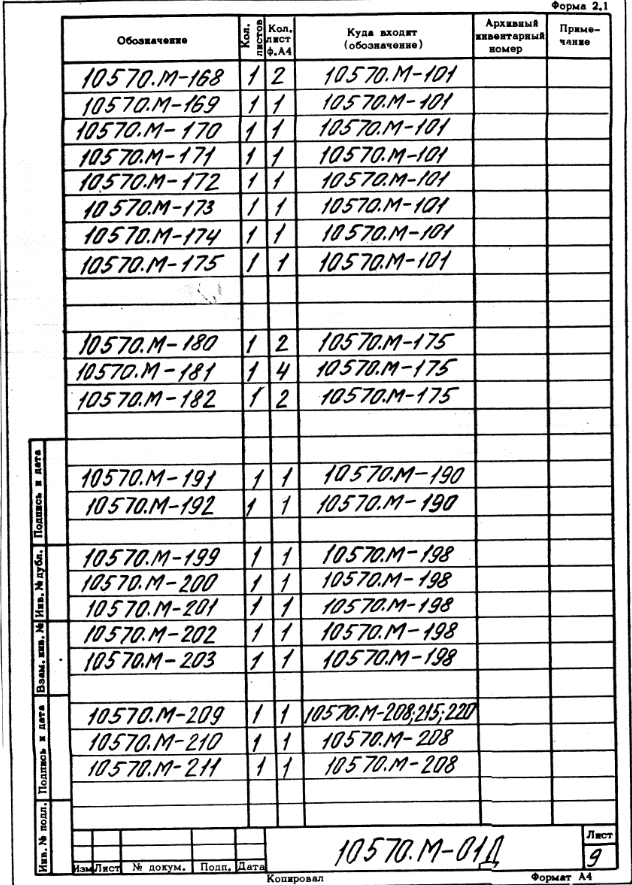 Форма 2.1
Обозначение Кол. листов Кол. лист ф.А4 Куда входит (обозначение) Архивный инвентарный номер Примечание
10570.М-168 1 2 10570.М-101
10570.М-169 1 1 10570.М-101
10570.М-170 1 1 10570.М-101
10570.М-171 1 1 10570.М-101
10570.М-172 1 1 10570.М-101
10570.М-173 1 1 10570.М-101
10570.М-174 1 1 10570.М-101
10570.М-175 1 1 10570.М-101
10570.М-180 1 2 10570.М-175
10570.М-181 1 4 10570.М-175
10570.М-182 1 2 10570.М-175
10570.М-191 1 1 10570.М-190
10570.М-192 1 1 10570.М-190
10570.М-199 1 1 10570.М-198
10570.М-200 1 1 10570.М-198
10570.М-201 1 1 10570.М-198
10570.М-202 1 1 10570.М-198
10570.М-203 1 1 10570.М-198
10570.М-209 1 1 10570.М-208;215;220
10570.М-210 1 1 10570.М-208
10570.М-211 1 1 10570.М-208
Подпись и дата
Инв. № дубл.
Взам. инв. №
Подпись и дата
Инв. № подл.
Изм Лист № докум. Подп. Дата
10570.М-01Д
Лист
9
Копировал Формат А4